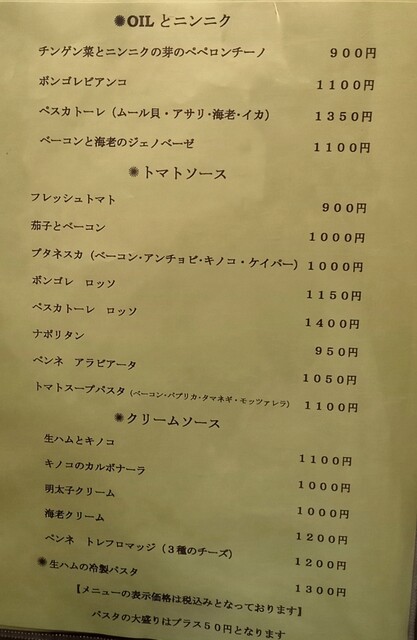 ✺OIL とニンニク
チンゲン菜とニンニクの芽のペペロンチーノ　９００円
ボンゴレビアンコ　１１００円
ペスカトーレ（ムール貝・アサリ・海老・イカ）　１３５０円
ベーコンと海老のジェノベーゼ　１１００円
✺トマトソース
フレッシュトマト　９００円
茄子とベーコン　１０００円
プタネスカ（ベーコン・アンチョビ・キノコ・ケイパー）　１０００円
ボンゴレ　ロッソ　１１５０円
ペスカトーレ　ロッソ　１４００円
ナポリタン　９５０円
ペンネ　アラビアータ　１０５０円
トマトスープパスタ（ベーコン・パプリカ・タマネギ・モッツァレラ）　１１００円
✺クリームソース
生ハムとキノコ　１１００円
キノコのカルボナーラ　１０００円
明太子クリーム　１０００円
海老クリーム　１２００円
ペンネ　トレフロマッジ（３種のチーズ）　１２００円
✺生ハムの冷製パスタ　１３００円
【メニューの表示価格は税込みとなっております】
パスタの大盛りはプラス５０円となります